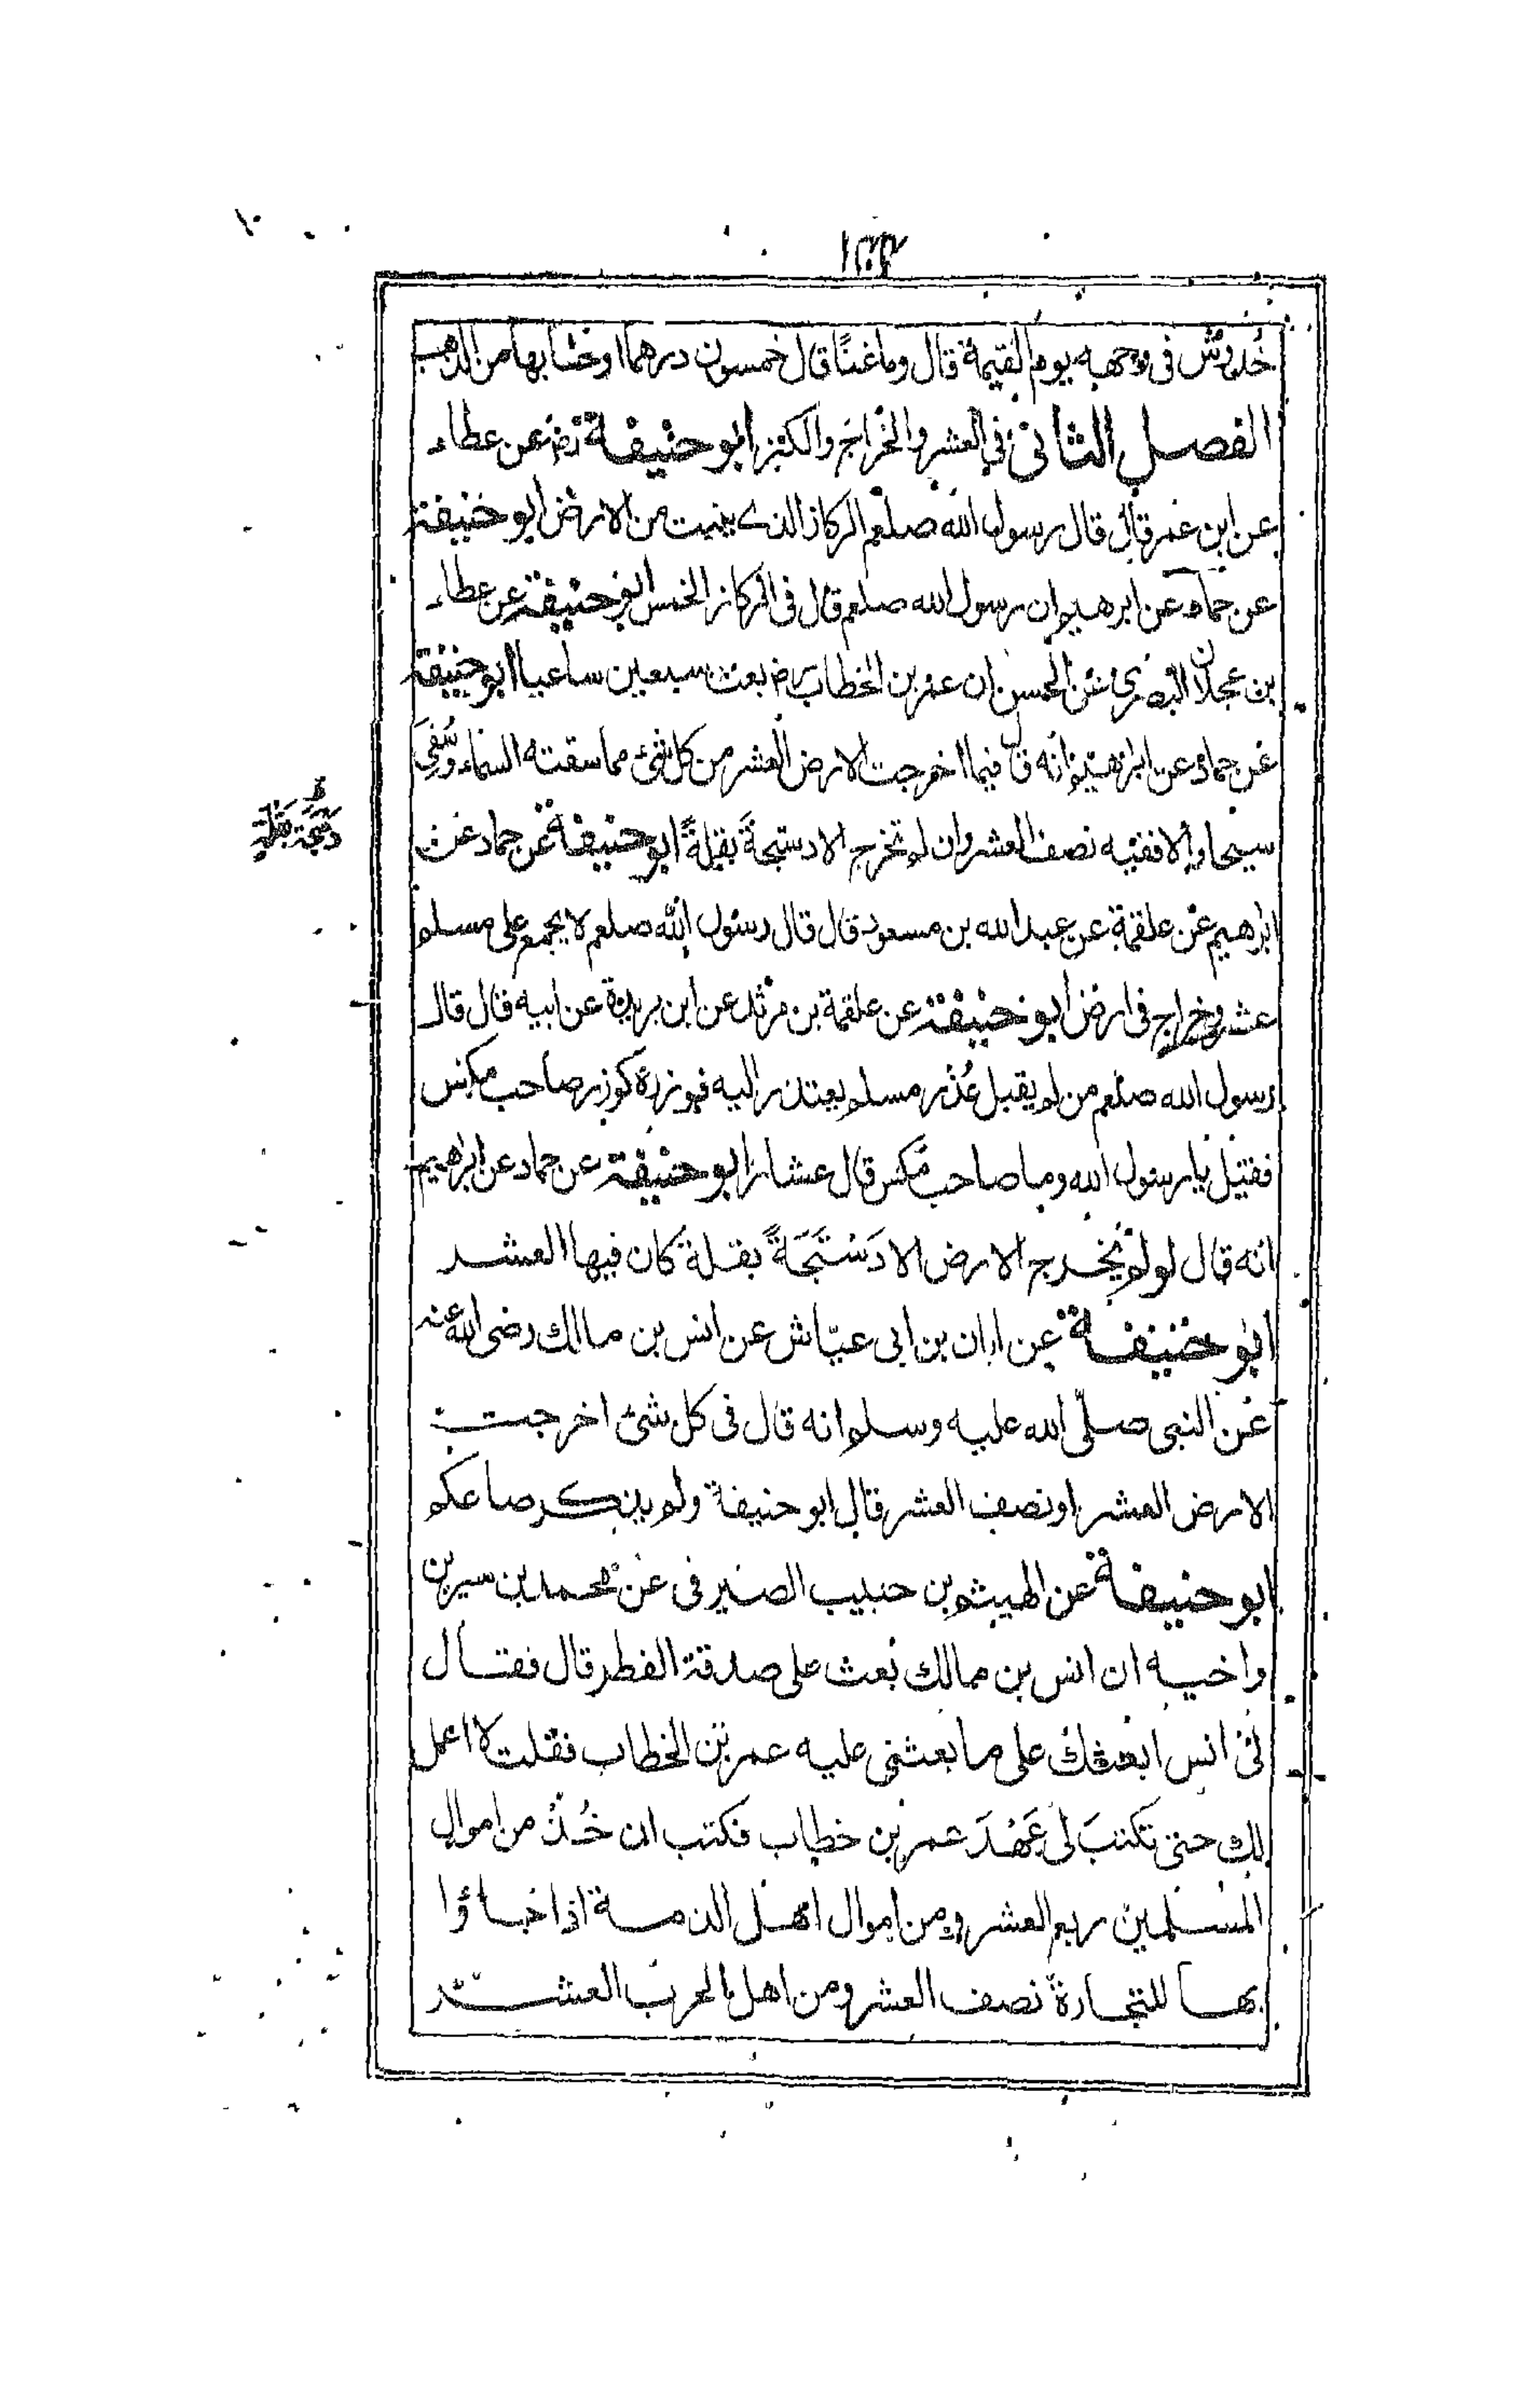 خُدوش فى وجهه يوم القيمة قال وما غنًا قال خمسون درهما او حسابها من الذهب
الفصل الثانى فى العشر والخراج والكنز ابو حنيفة رض عن عطاء
عن ابن عمر قال قال رسول الله صلعم الركاز الذى ينبت من الارض ابو حنيفة
عن حماد عن ابرهيم ان رسول الله صلعم قال فى الركاز الخمس ابو حنيفة عن عطاء
بن عجلان البصرى عن الحسن ان عمر بن الخطاب رض بعث سبعين ساعيا ابو حنيفة
عن حماد عن ابراهيم انه قال فيما اخرجت الارض العشر من كل شئ مما سقته السماء وسُقِىَ
سيحا والا ففيه نصف العشر وان لم تخرج الا دستجةَ بقيلةً ابو حنيفة عن حماد عن
ابرهيم عن علقمة عن عبد الله بن مسعود قال قال رسول الله صلعم لا يجمع على مسلم
عشر وخراج فى ارض ابو حنيفة عن علقمة بن مرثد عن ابن بريدة عن ابيه قال قال
رسول الله صلعم من لم يقبل عُذر مسلم يعتذر اليه فوزره كوزر صاحب مكس
فقيل يا رسول الله وما صاحب مكس قال عشار ابو حنيفة عن حماد عن ابرهيم
انه قال لو لم يخرج الارض الا دَسْتَجَةً بقلة كان فيها العشر
ابو حنيفة عن ابان بن ابى عيّاش عن انس بن مالك رضى الله عنه
عن النبى صلّى الله عليه وسلم انه قال فى كل شئ اخرجت
الارض العشر او نصف العشر قال ابو حنيفة ولم يذكر صاعكم
ابو حنيفة عن الهيثم بن حبيب الصيرفى عن محمد بن سيرين
واخيه ان انس بن مالك بعث على صدقة الفطر قال فقال
لى انس ابعثك على ما بعثنى عليه عمر بن الخطاب فقلت لا اعمل
لك حتى تكتبَ لى عَهْدَ عمر بن خطاب فكتب ان خُذْ من اموال
المسلمين ربع العشر ومن اموال اهل الذمة اذا جاؤا
بها للتجارة نصف العشر ومن اهل الحرب العشر
دستجة بقلة